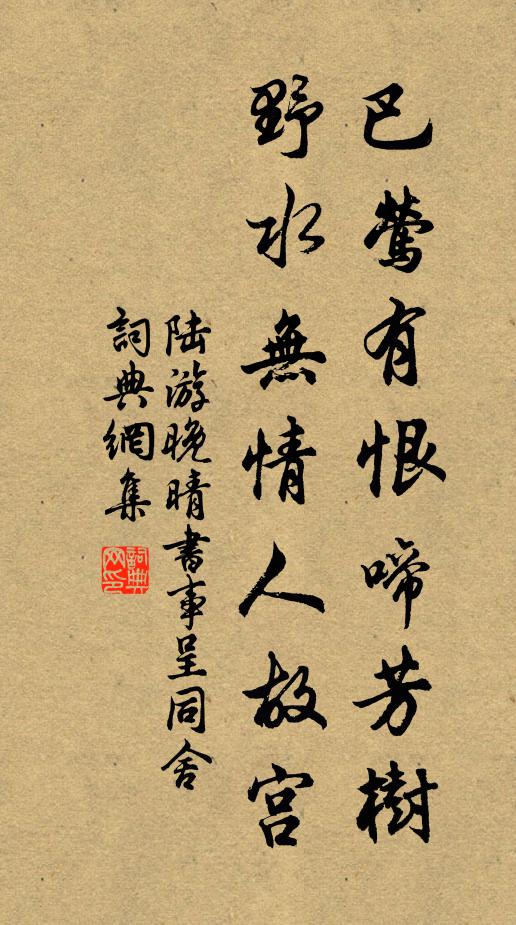 巴鶯有恨啼芳樹
野水無情人故宫
陆游晚晴書事呈同舍
詞典網集
詞典网印